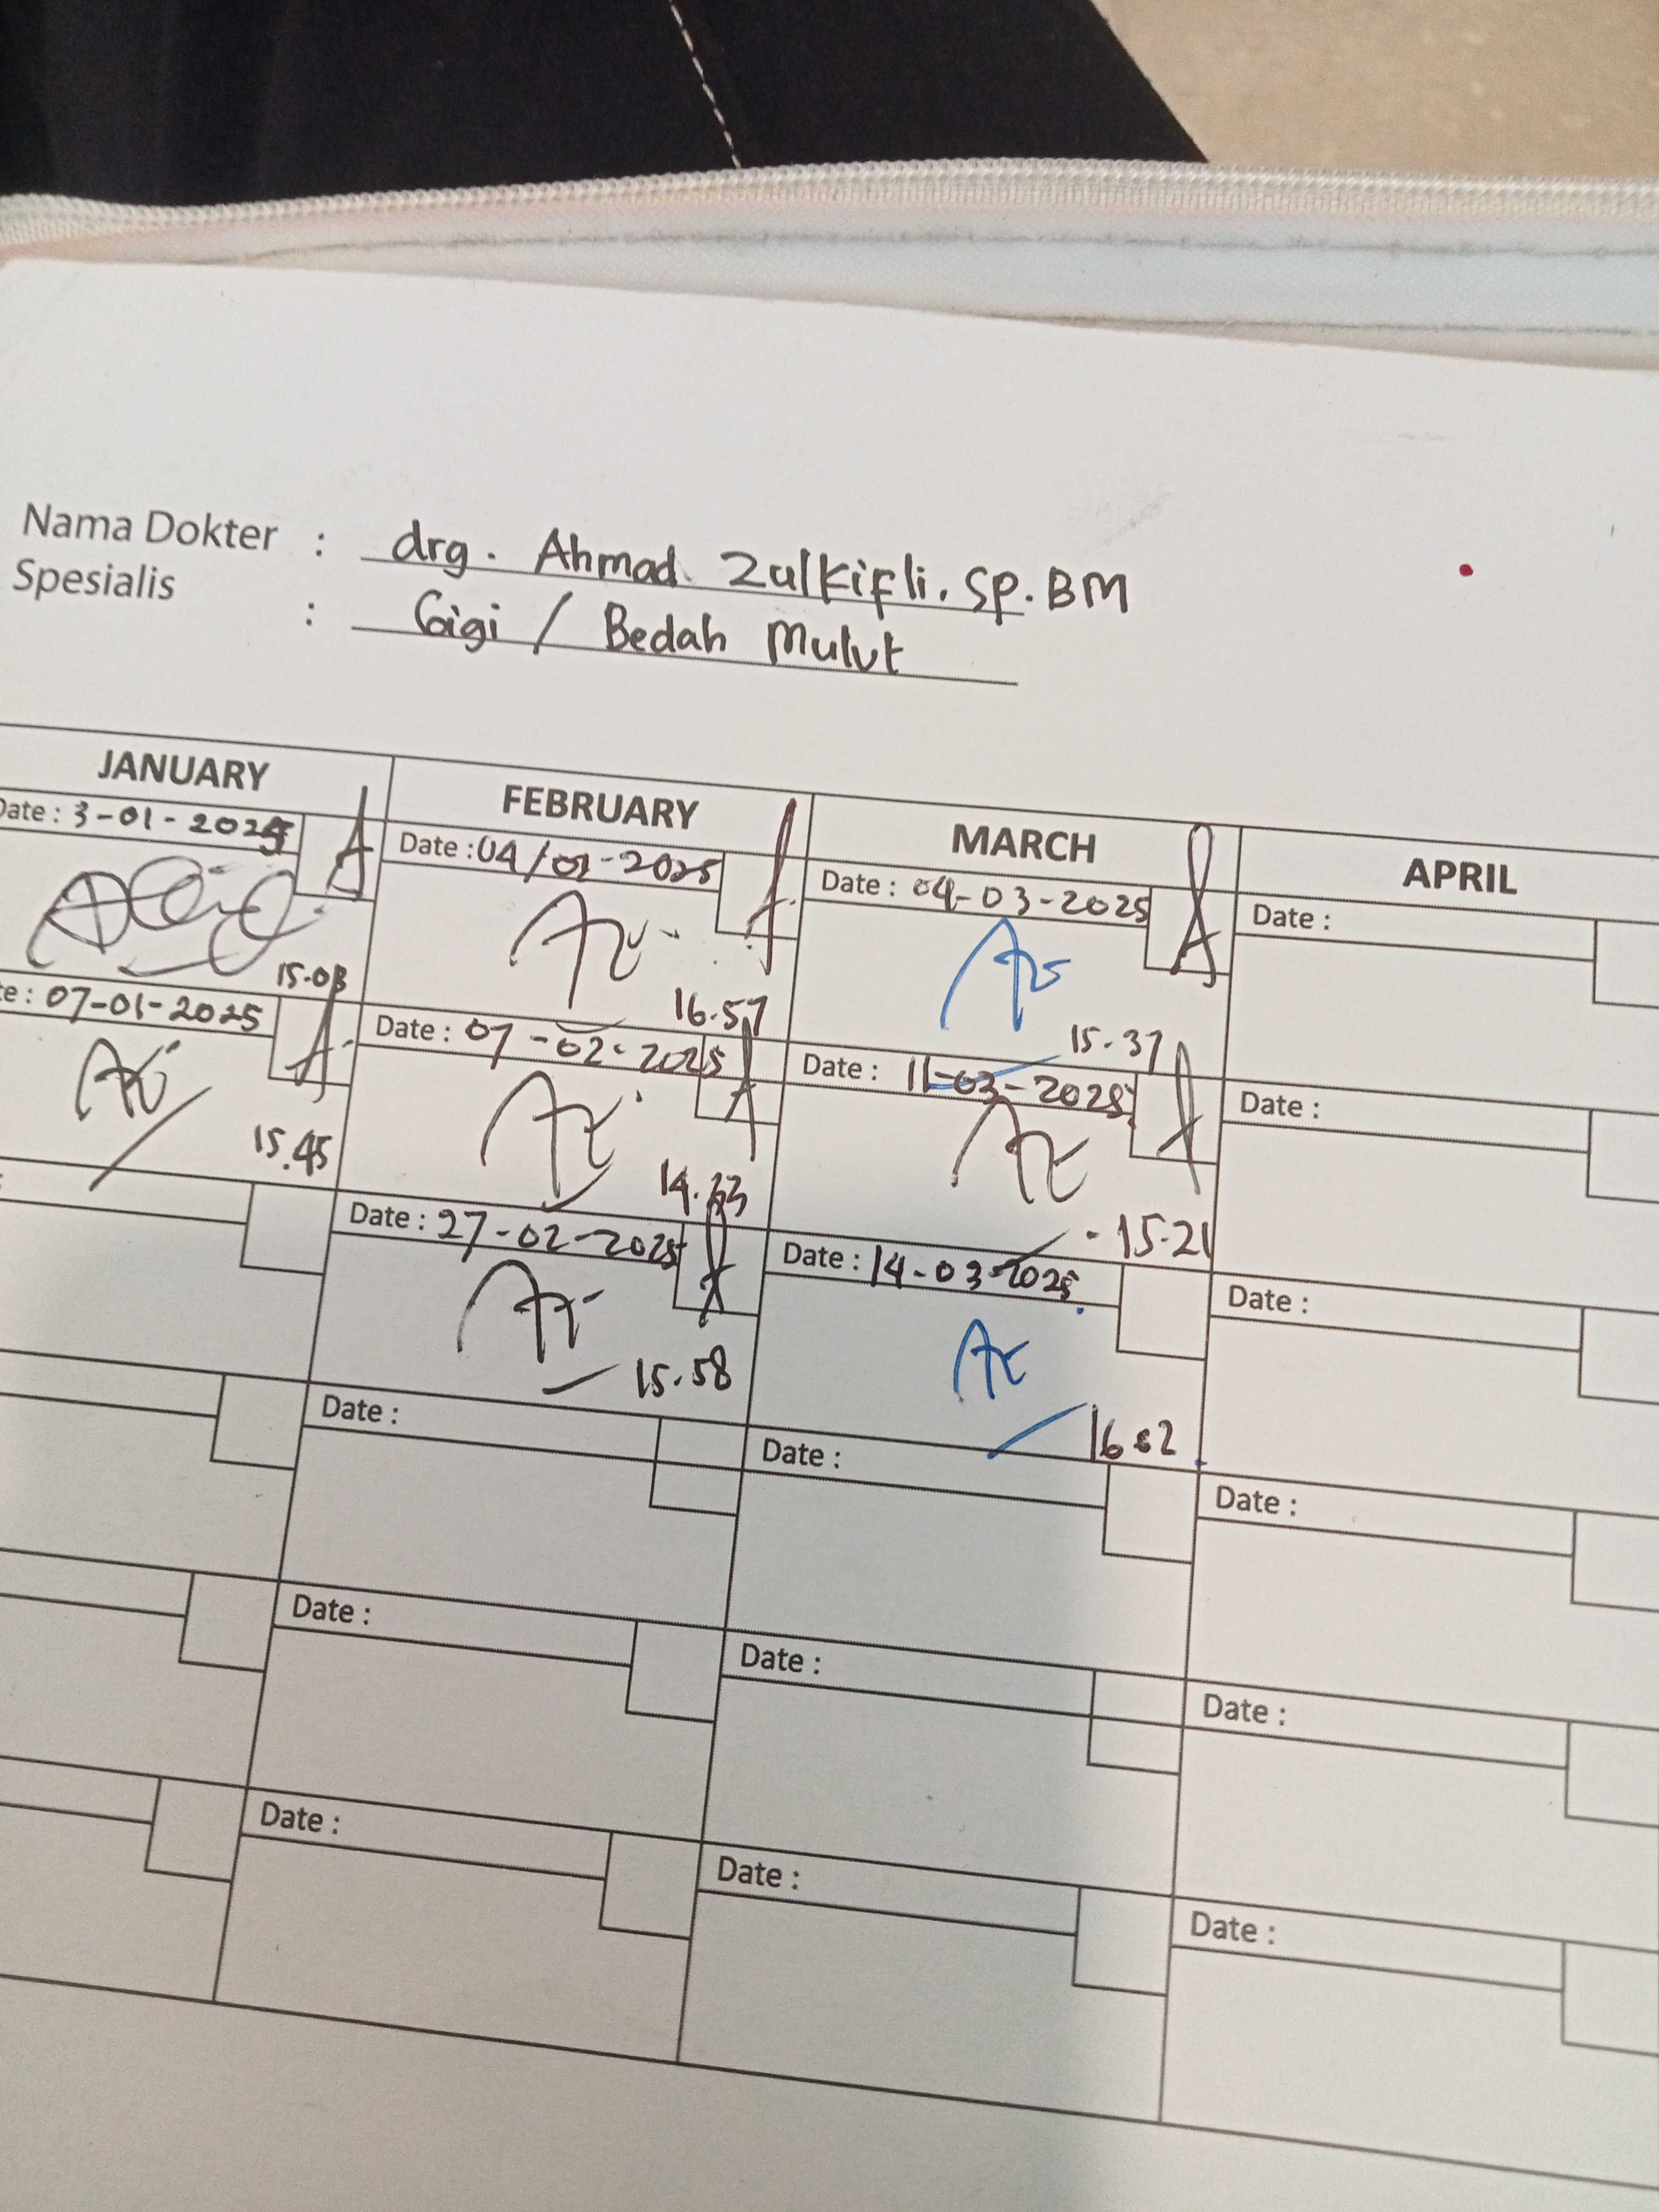 Nama Dokter : drg. Ahmad Zulkifli. Sp. BM
Spesialis : Gigi / Bedah Mulut
JANUARY FEBRUARY MARCH APRIL
Date : 3-01-2025
15.03
07-01-2025
15.45
Date : 04/02-2025
16.57
Date : 07-02-2025
14.33
Date : 27-02-2025
15.58
Date :
Date :
Date :
Date : 04-03-2025
15.37
Date : 11-03-2025
15.21
Date : 14-03-2025
16.02
Date :
Date :
Date :
Date :
Date :
Date :
Date :
Date :
Date :